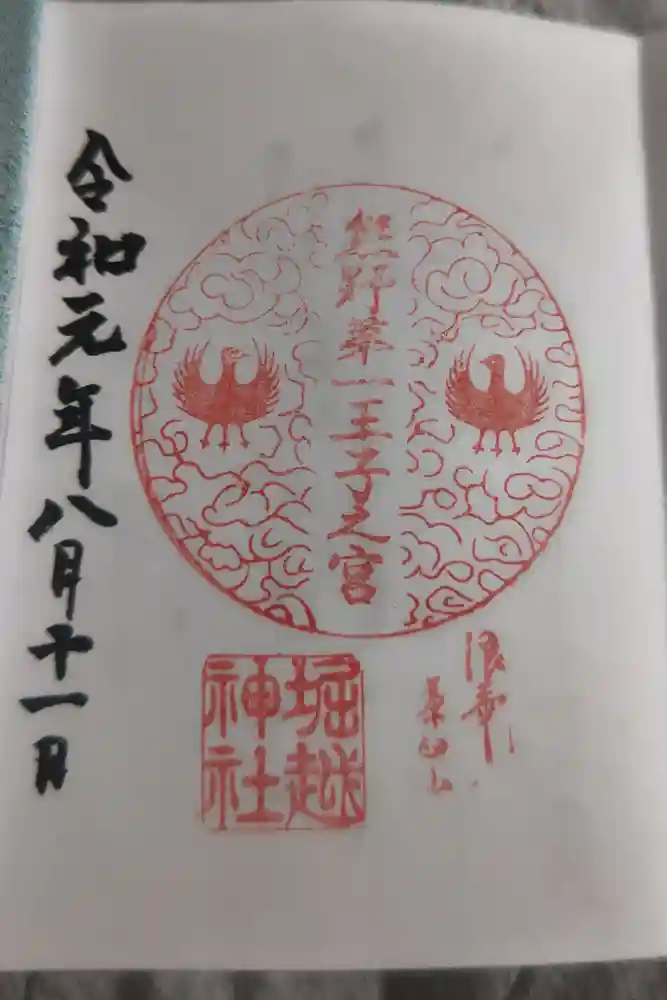 浪華
茶臼山
熊野第一王子之宮
堀越
神社
令和元年八月十一日